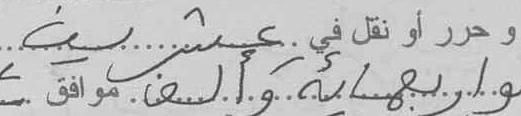 و حرر أو نقل في عشرين
وأربعمائة وألف موافق